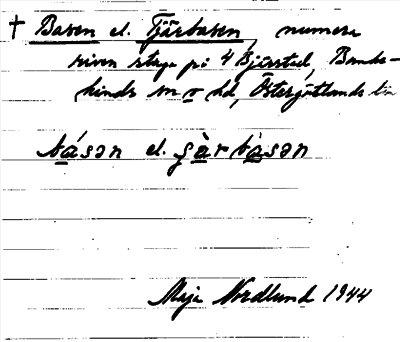 † Basen el. Tjärbasen, numera
riven stuga på 4 Bjärstad, Banke-
kinds sn o hd, Östergötlands län
básən el. ɕàrbàsən
Maja Nordlund 1944